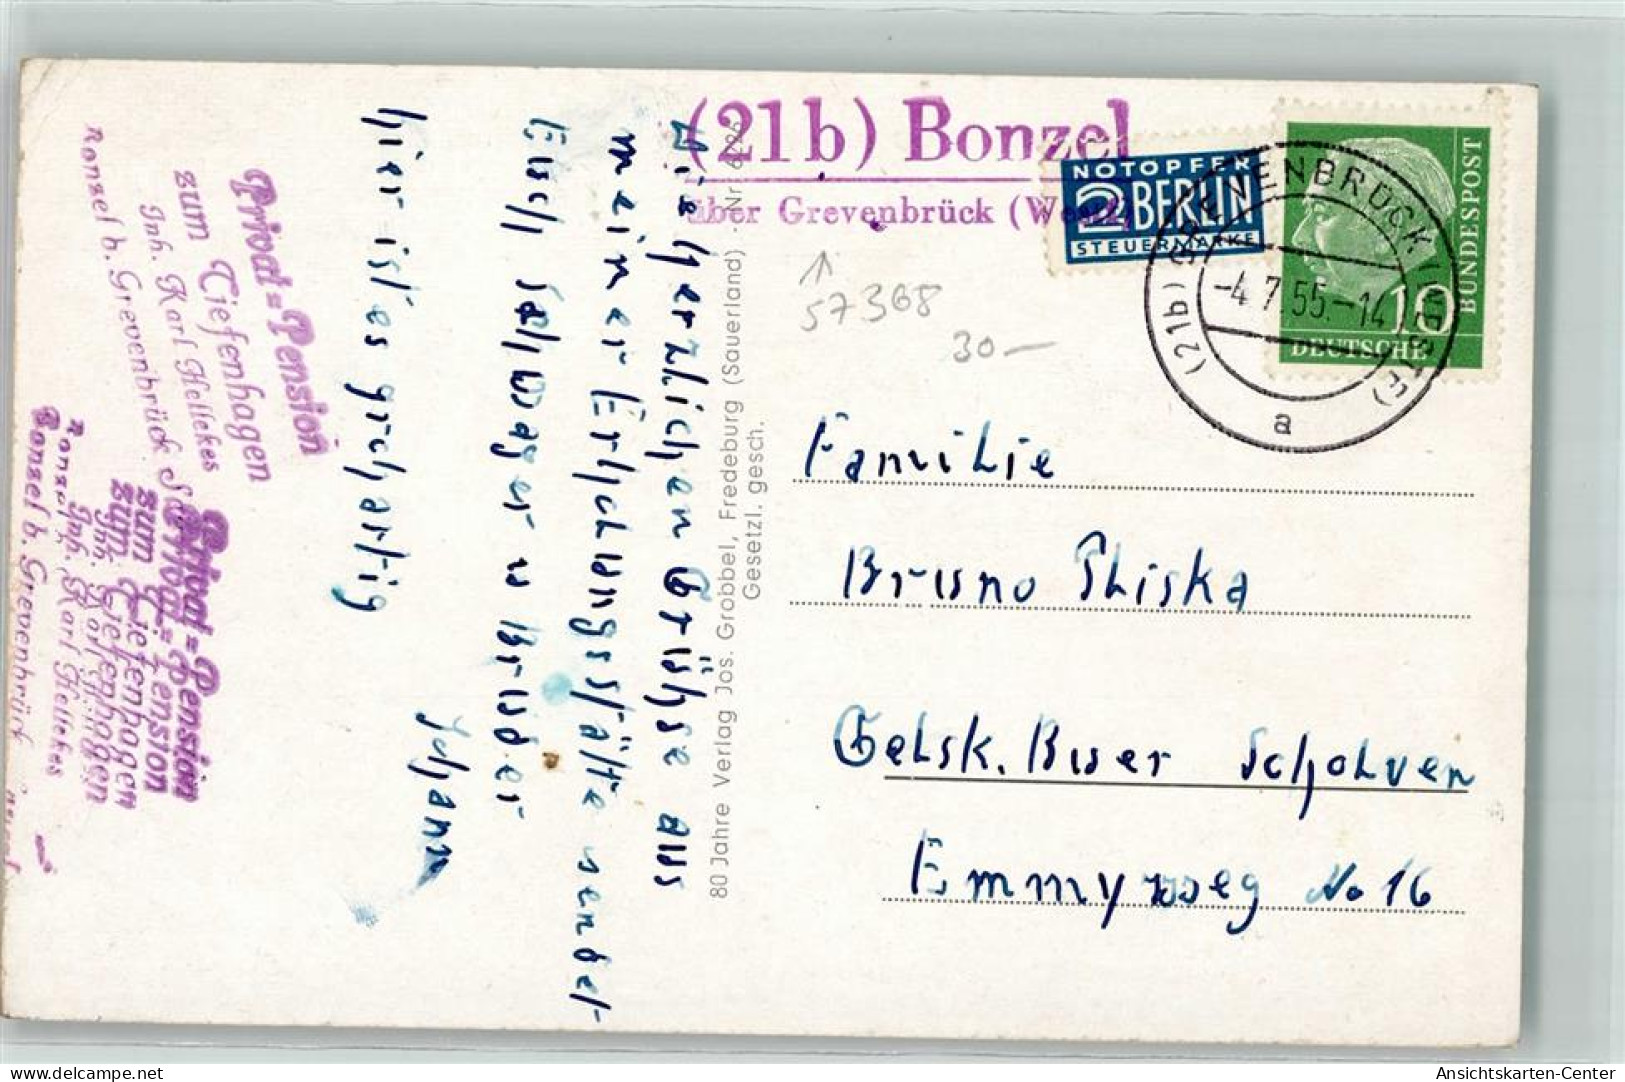 (21b) Bonzel
über Grevenbrück (Westf)
NOTOPFER
2 BERLIN
STEUERMARKE
DEUTSCHE
BUNDESPOST
10
(21b) GREVENBRÜCK (WESTF)
-4.7.55.-14
a
57368
30-
Familie
Bruno Thiska
Gelsk. Buer Scholven
Emmyweg No 16
Die herzlichen Grühse aus
meiner Erholungsstätte sendet
Euch Schwager u Bruder
Johann
hier ist es grohsartig
80 Jahre Verlag Jos. Grobbel, Fredeburg (Sauerland) · Nr.
Gesetzl. gesch.
Privat=Pension
zum Tiefenhagen
Inh. Karl Hellekes
Bonzel b. Grevenbrück
Privat=Pension
zum Tiefenhagen
Inh. Karl Hellekes
Bonzel b. Grevenbrück
Ansichtskarten-Center